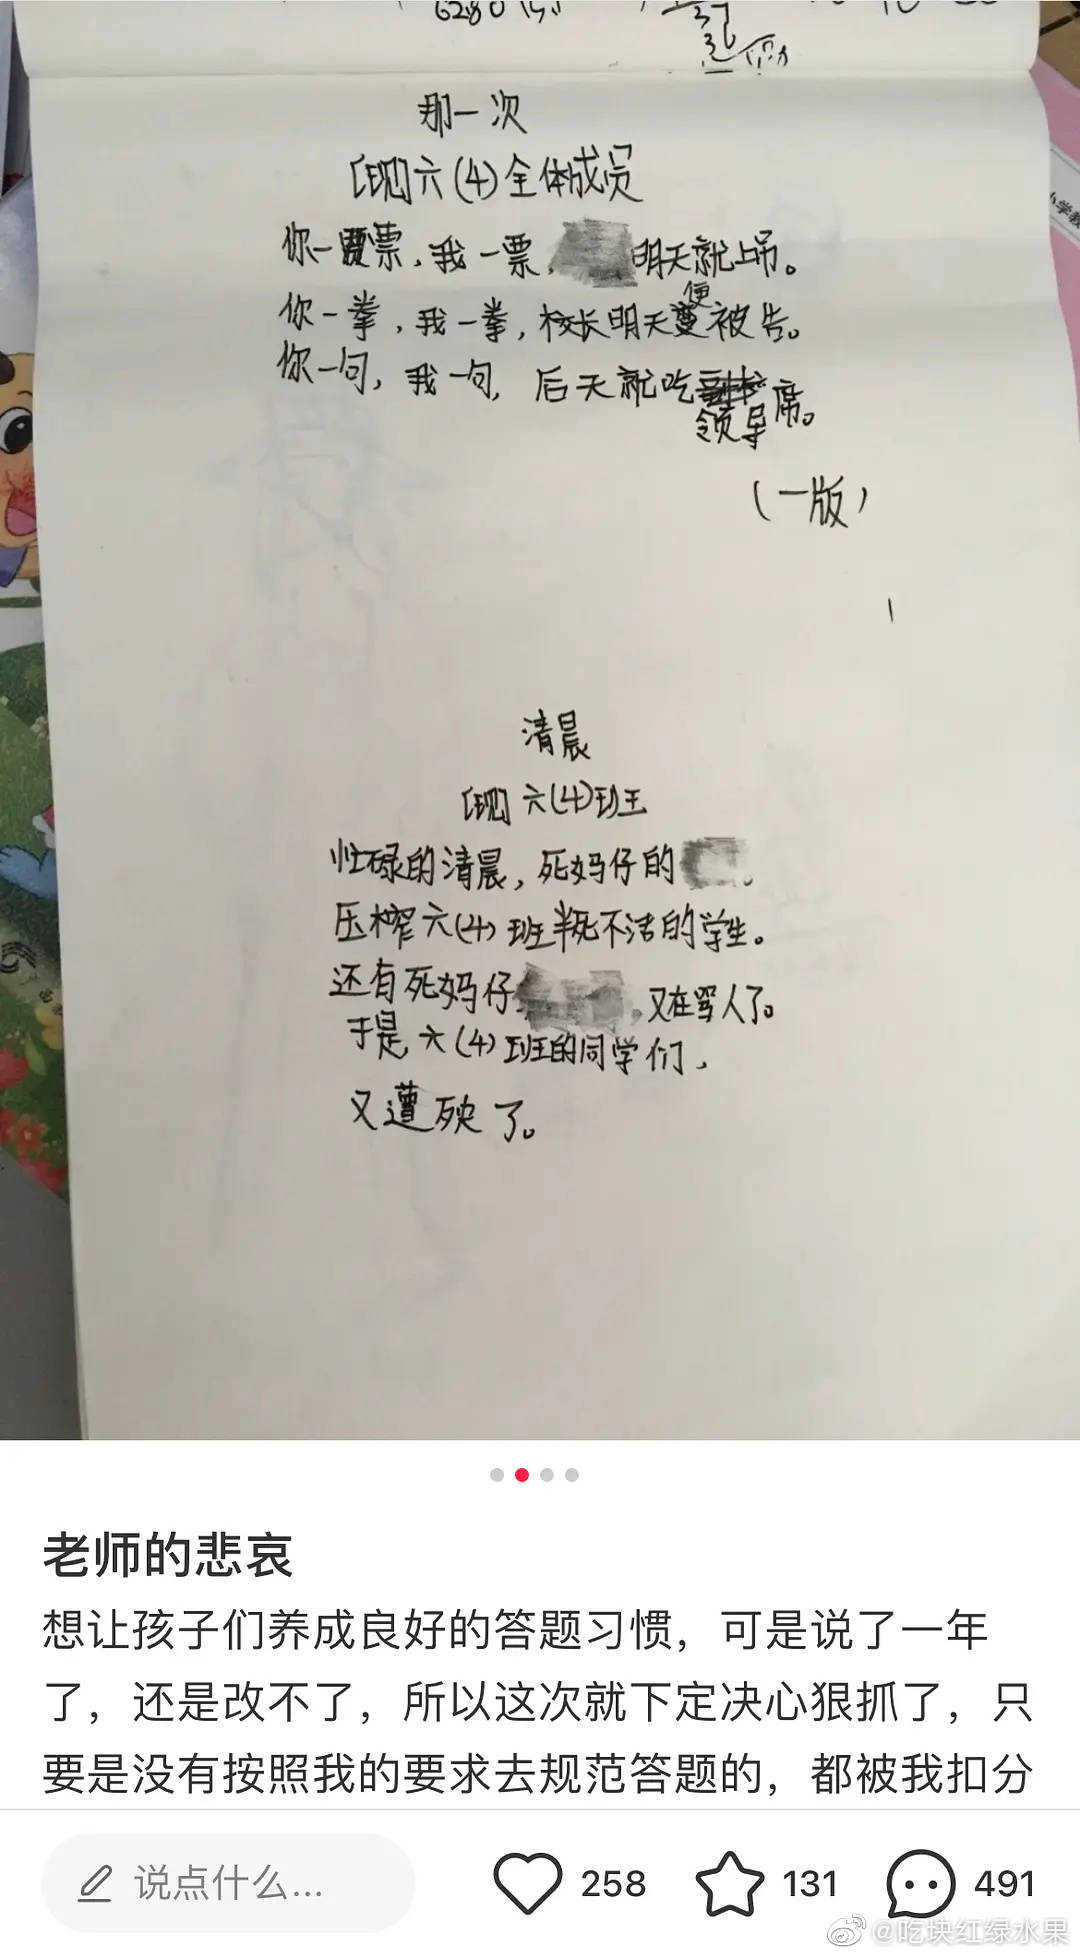 6280
那一次
[现]六(4)全体成员
你一票,我一票,明天就上吊。
你一拳,我一拳,校长明天便被告。
你一句,我一句,后天就吃领导席。
(一版)
清晨
[现]六(4)班王
忙碌的清晨,死妈仔的。
压榨六(4)班半死不活的学生。
还有死妈仔,又在骂人了。
于是,六(4)班的同学们,
又遭殃了。
老师的悲哀
想让孩子们养成良好的答题习惯，可是说了一年
了，还是改不了，所以这次就下定决心狠抓了，只
要是没有按照我的要求去规范答题的，都被我扣分
说点什么...
258
131
491
@吃块红绿水果